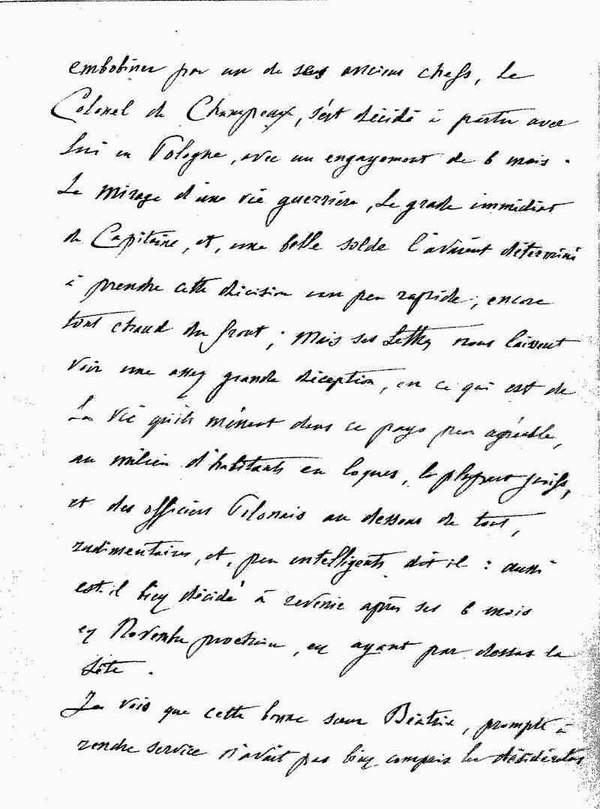 embobiner par un de ses anciens chefs, le
Colonel de Champeaux, s'est décidé à partir avec
lui en Pologne, avec un engagement de 6 mois.
Le mirage d'une vie guerrière, le grade immédiat
de Capitaine, et, une belle solde l'avaient déterminé
à prendre cette décision un peu rapide, encore
tout chaud du front ; mais ses lettres nous laissent
voir une assez grande déception, en ce qui est de
la vie qu'ils mènent dans ce pays peu agréable,
au milieu d'habitants en loques, la plupart juifs,
et des officiers Polonais au dessous de tout,
rudimentaires, et, peu intelligents dit il : aussi
est-il bien décidé à revenir après ses 6 mois
en Novembre prochain, en ayant par dessus la
tête.
Je vois que cette bonne sœur Béatrix, prompte à
rendre service n'avait pas bien compris les désidératas